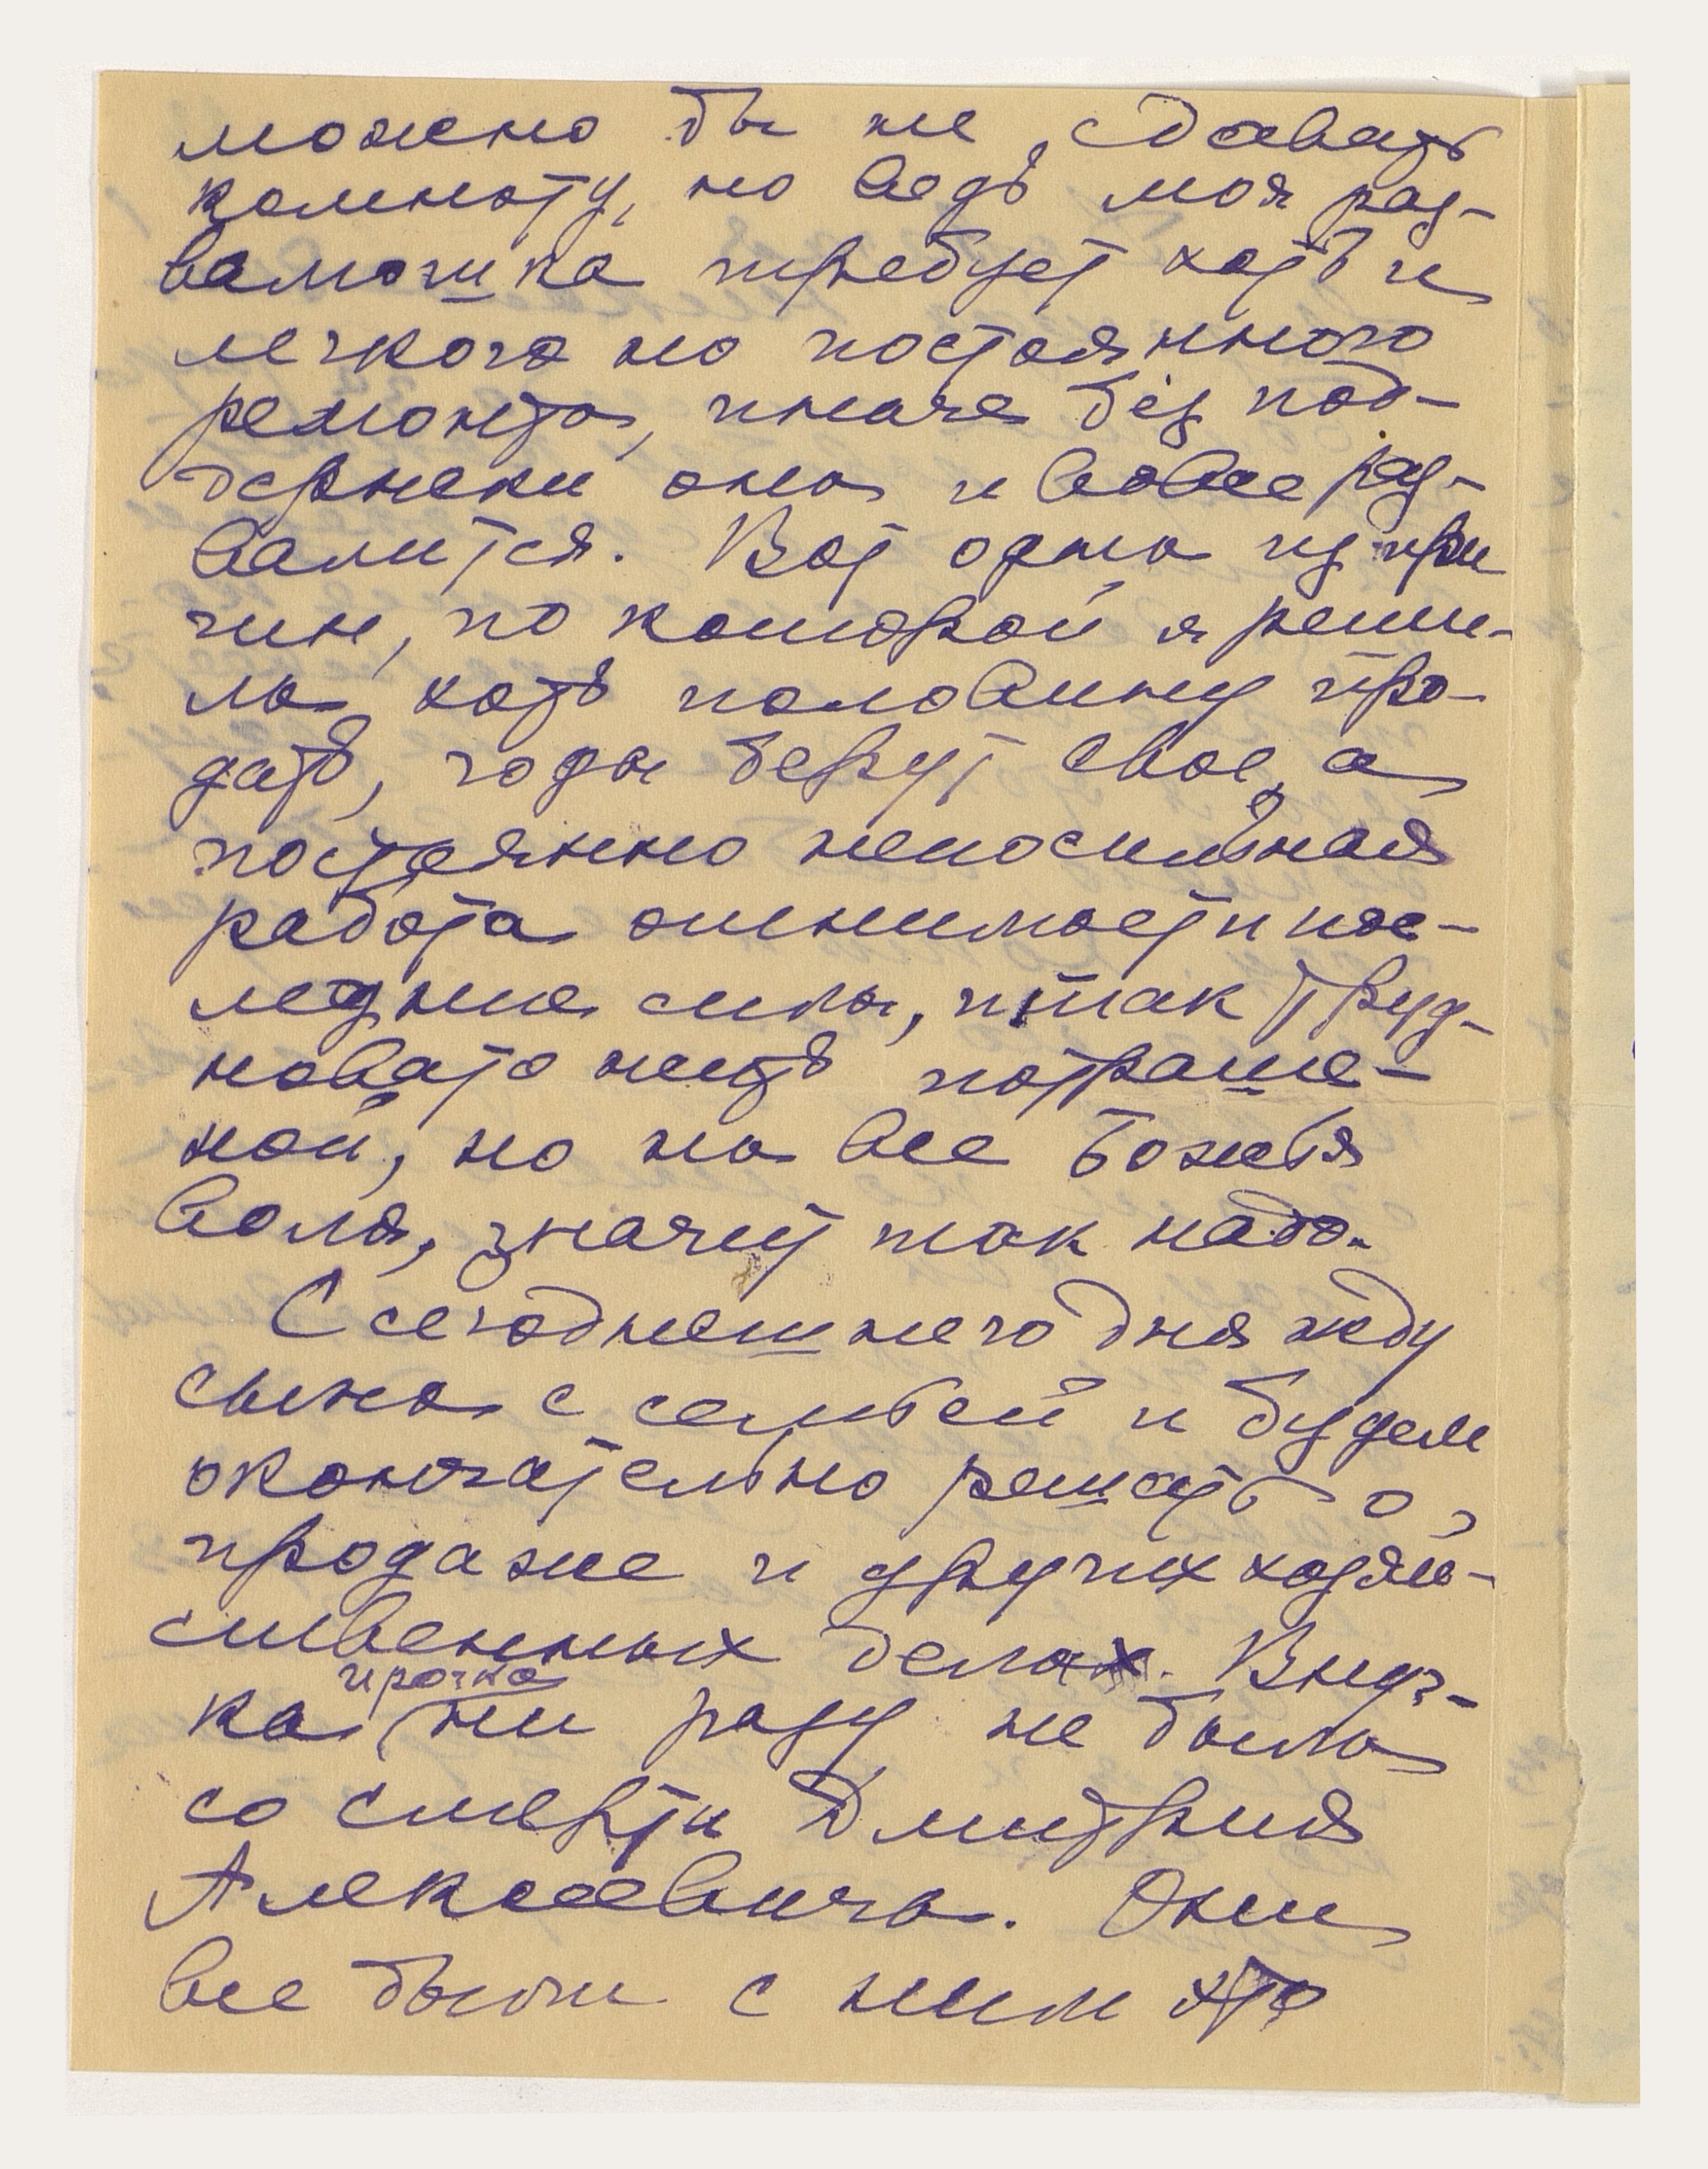 можно бы не сдавать
комнату, но ведь моя раз-
валюшка требует хоть и
легкого но постоянного
ремонта, иначе без под-
держки она и вовсе раз-
валится. Вот одна из при
чин, по которой я реши-
ла хоть половину про-
дать, годы берут свое, а
постоянно непосильная
работа отнимает и пос-
ледние силы, и так труд-
новато жить
ной, но на все Божья
воля, значит так надо.
С сегоднешнего дня жду
сына с семьей и будем
окончательно решать о
продаже и других хозяй-
ственных делах. Внуч-
ка ни разу не была
со смерти Дмитрия
Алексеевича. Они
все были с ним